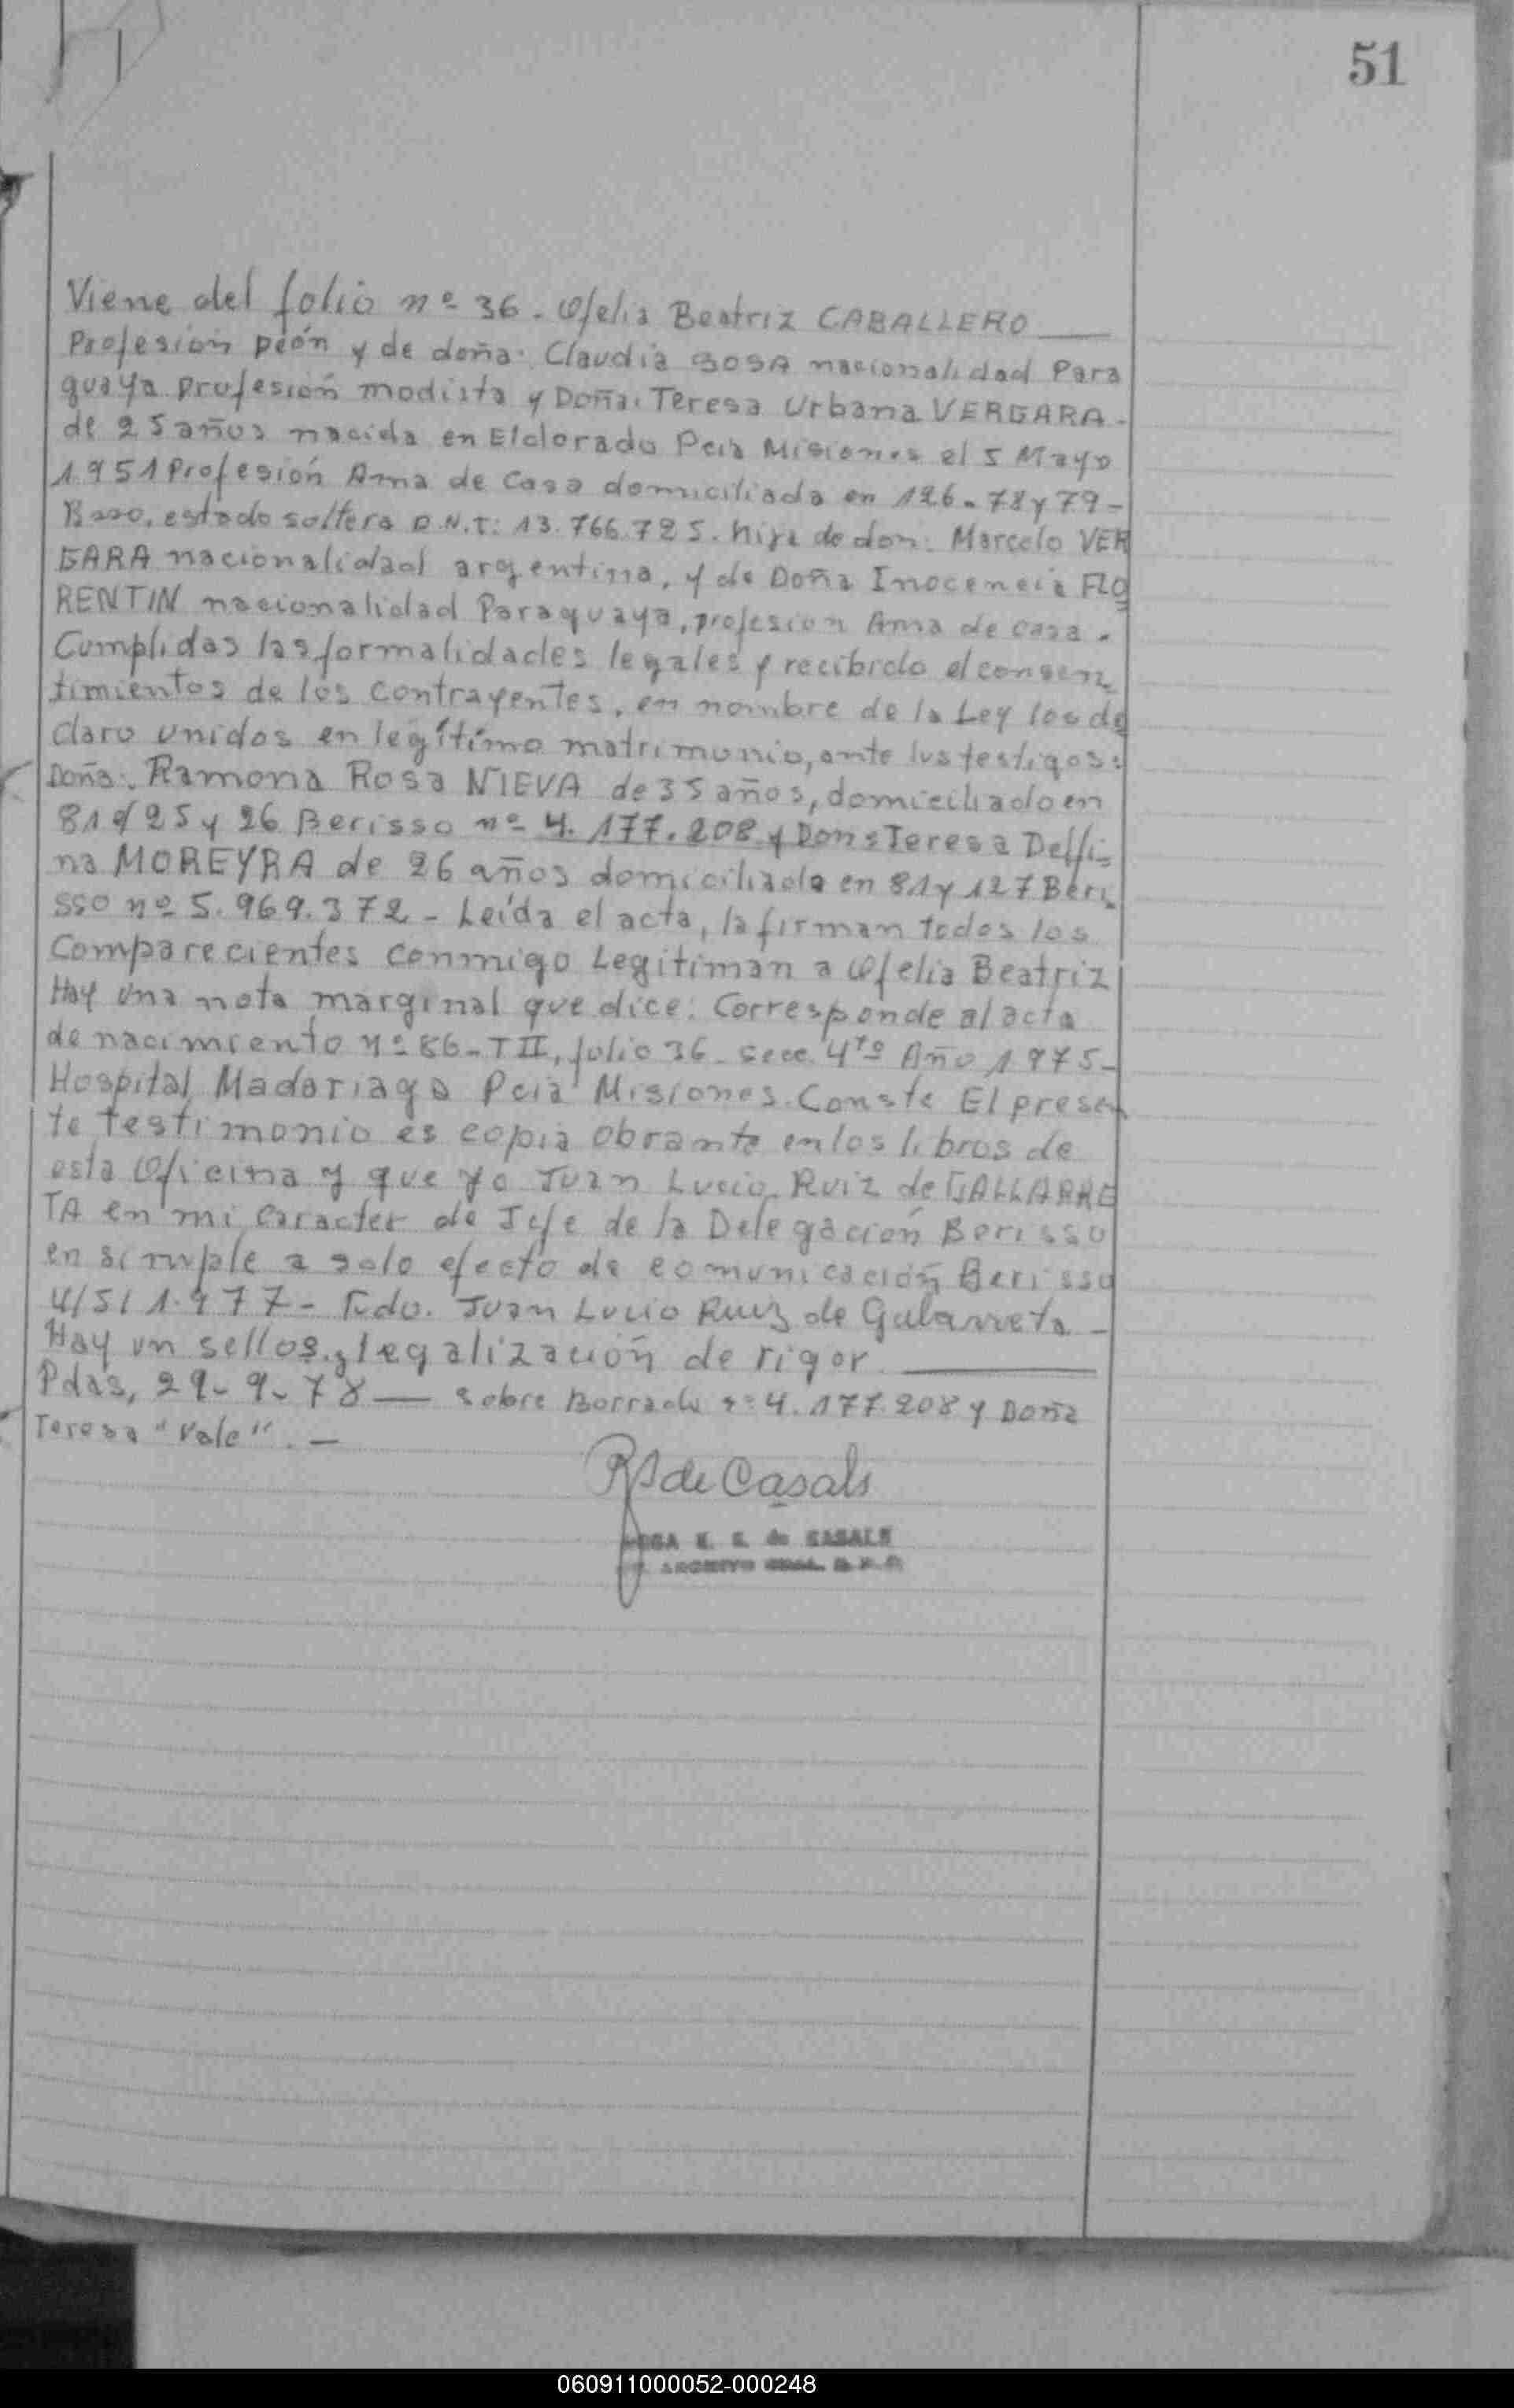 51
Viene del folio nº 36. Ofelia Beatriz CABALLERO
Profesión peón y de doña: Claudia SOSA nacionalidad Para
guaya profesión modista y Doña: Teresa Urbana VERGARA-
de 25 años nacida en Eldorado Pcia Misiones el 5 Mayo
1.951 Profesión Ama de Casa domiciliada en 126-78 y 79-
Bsso, estado soltera D.N.I: 13.766.725. hija de don: Marcelo VER
GARA nacionalidad argentina, y de Doña Inocencia FLO
RENTIN nacionalidad Paraguaya, profesion Ama de casa.
Cumplidas las formalidades legales y recibido el consen
timientos de los contrayentes, en nombre de la Ley los de
claro unidos en legítimo matrimonio, ante los testigos:
Doña: Ramona Rosa NIEVA de 35 años, domiciliado en
81 e/ 25 y 26 Berisso nº 4.177.208 y Doña Teresa Delfi-
na MOREYRA de 26 años domiciliada en 81 y 127 Beri
sso nº 5.969.372 - Leída el acta, la firman todos los
Comparecientes conmigo Legitiman a Ofelia Beatriz
Hay una nota marginal que dice: Corresponde al acta
de nacimiento nº 86-TII, folio 36 - secc. 4ta Año 1975-
Hospital Madariaga Pcia Misiones. Conste El presen
te testimonio es copia obrante en los libros de
esta Oficina y que yo Juan Lucio Ruiz de GALLARRE
TA en mi caracter de Jefe de la Delegación Berisso
en simple a solo efecto de comunicación Berisso
4/5/1.977- Fdo. Juan Lucio Ruiz de Galarreta -
Hay un sellos y legalización de rigor
Pdas, 29-9-78 — sobre Borrado nº 4.177.208 y Doña
Teresa "Vale". -
RS de Casals
ROSA E. S. de CASALS
ARCHIVO GRAL. R. P. P.
060911000052-000248